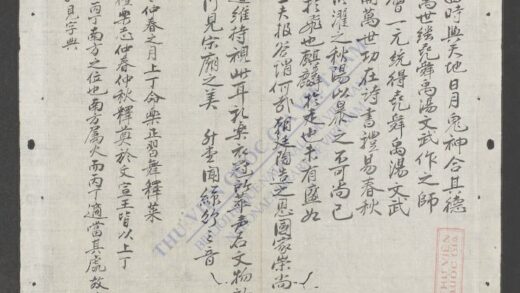 當時與天地日月鬼神合其德
萬世繼堯舜禹湯文武作之師
一元統得堯舜禹湯文武
萬世功在詩書禮易春秋
濯之秋陽以暴之不可尚已
於飛也麒麟於走也未有盛如
工夫报答涓何 朝廷陶造之恩國家崇尚
道維持視世耳礼樂衣冠 萃声名文物
見宗廟之美 升堂闻絲竹之音
仲春之月上丁分樂正習舞釋菜
禮樂志仲春仲秋釋奠於文宣王皆以上丁
丙丁南方之位也南方属火而丙丁適當其處故
見字典
THƯ VIỆN QUỐC GIA